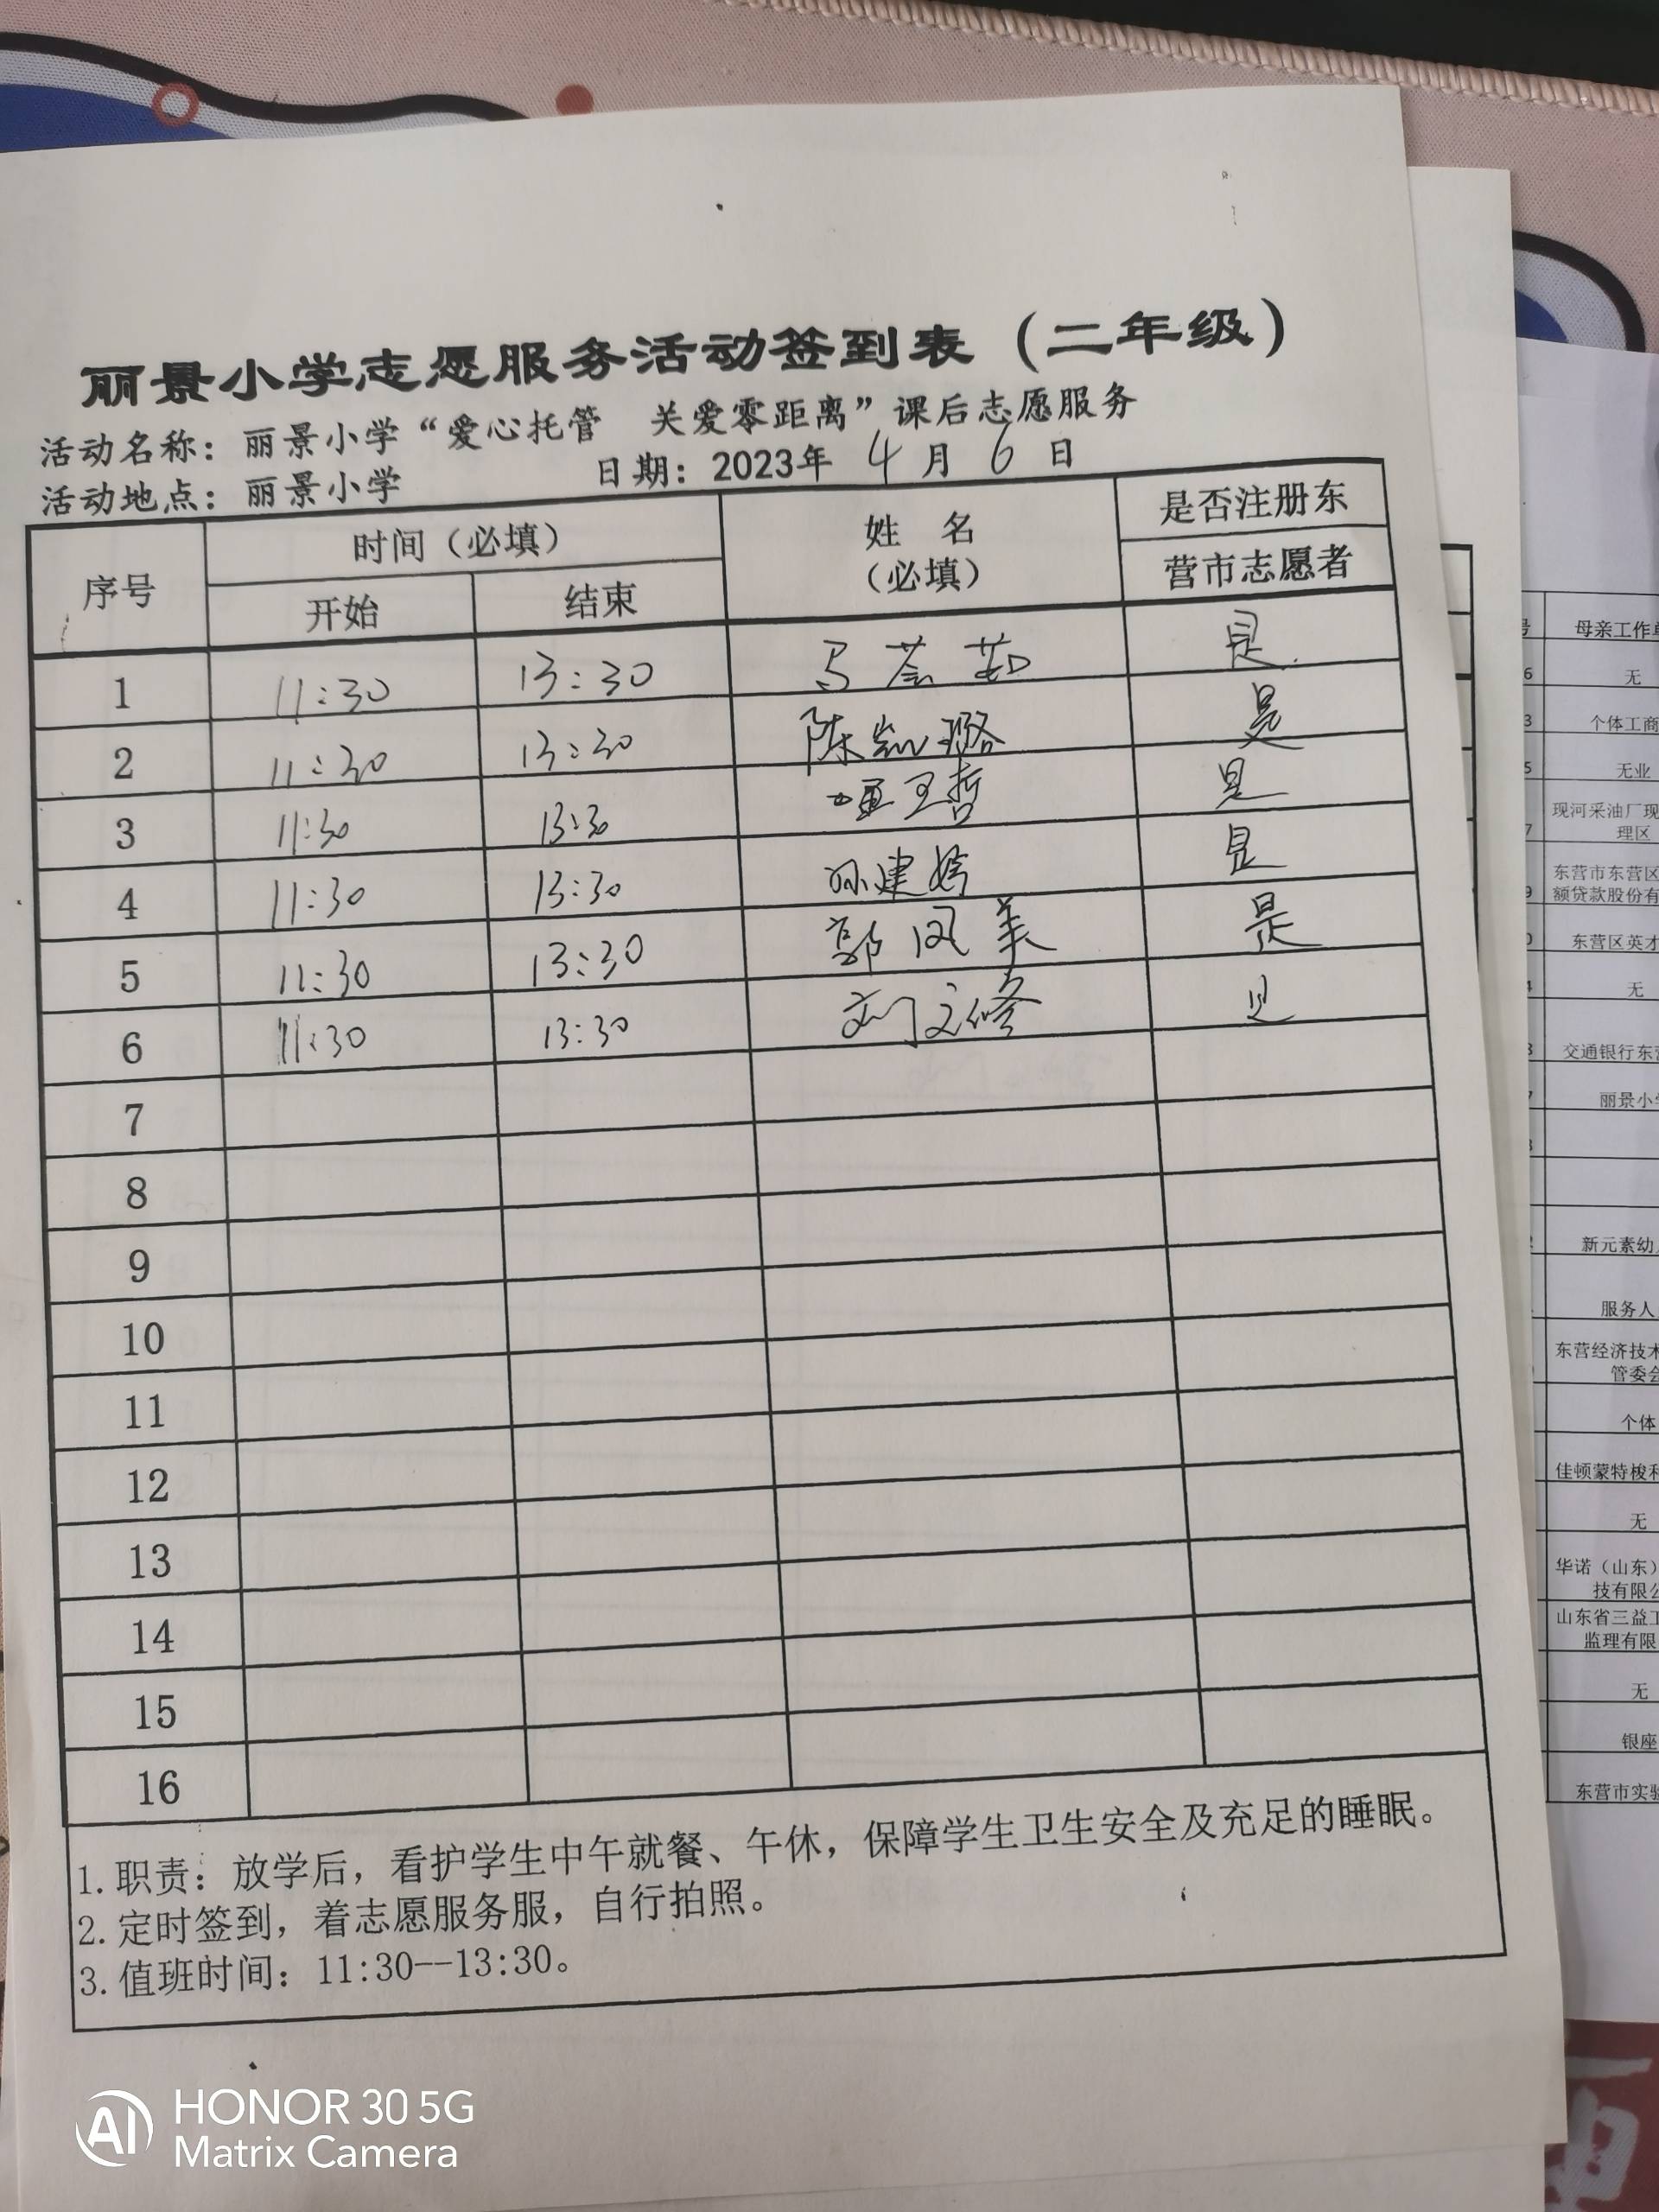 丽景小学志愿服务活动签到表（二年级）
活动名称：丽景小学“爱心托管 关爱零距离”课后志愿服务
活动地点：丽景小学 日期：2023年 4 月 6 日
序号 时间（必填） 姓 名（必填） 是否注册东营市志愿者
开始 结束
1 11:30 13:30 马荟茹 是
2 11:30 13:30 陈凯璐 是
3 11:30 13:30 是
4 11:30 13:30 孙建嫦 是
5 11:30 13:30 郭凤美 是
6 11:30 13:30 刘文修 是
7
8
9
10
11
12
13
14
15
16
1.职责：放学后，看护学生中午就餐、午休，保障学生卫生安全及充足的睡眠。
2.定时签到，着志愿服务服，自行拍照。
3.值班时间：11:30--13:30。
母亲工作单
无
个体工商
无业
现河采油厂现
理区
东营市东营区
额贷款股份有
东营区英才
无
交通银行东营
丽景小学
新元素幼儿
服务人
东营经济技术
管委会
个体
佳顿蒙特梭利
无
华诺（山东）
技有限公
山东省三益工
监理有限
无
银座
东营市实验
AI HONOR 30 5G
Matrix Camera